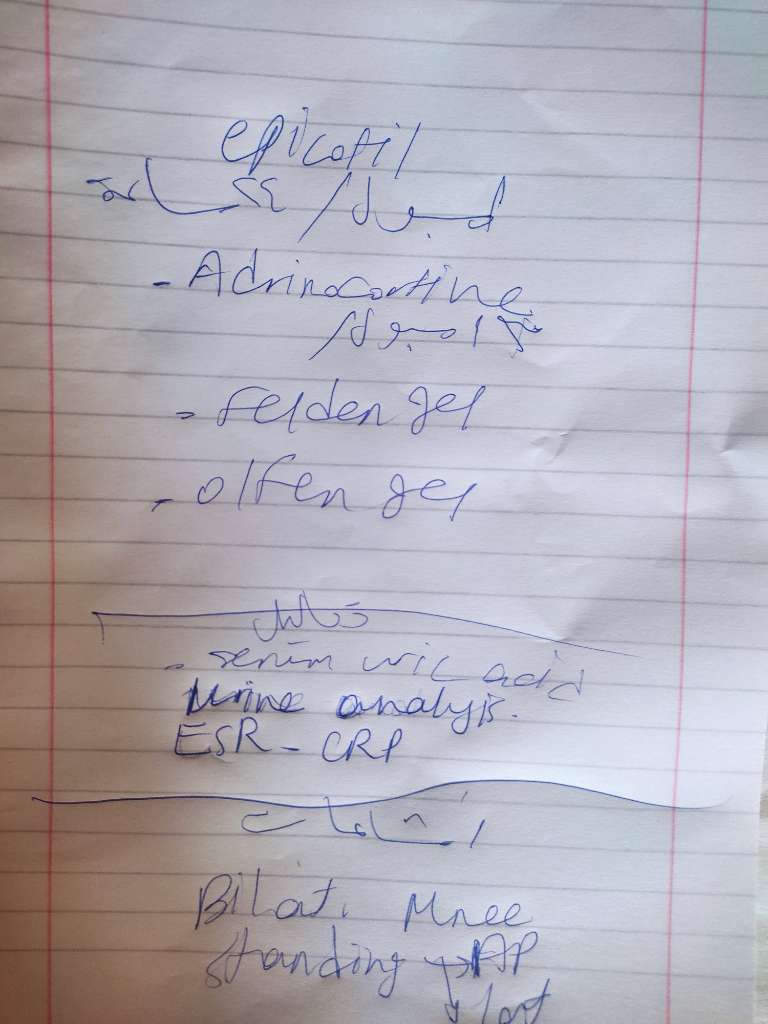 epicotil
امبول /
- Adrinocortine
3 امبول /
- felden gel
- olfen gel
تحاليل
- serum uric acid
Urine analysis.
ESR - CRP
اشاعات
Bilat. Knee
standing → AP
↓ lat